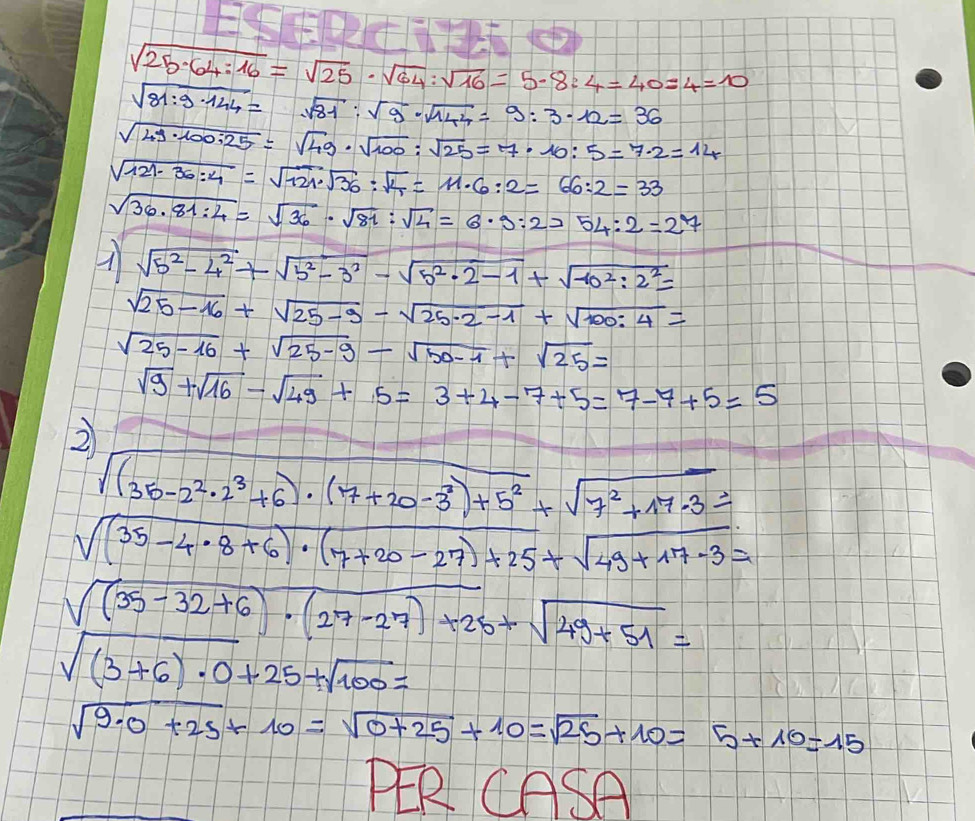 ESERCiZiO
√25·64:16 = √25 · √64 : √16 = 5·8:4 = 40:4 = 10
√81:9·144 = √81 : √9 · √144 = 9:3·12 = 36
√49·100:25 = √49 · √100 : √25 = 7·10:5 = 7·2 = 14
√121·36:4 = √121·√36 : √4 = 11·6:2 = 66:2 = 33
√36·81:4 = √36 · √81 : √4 = 6·9:2 = 54:2 = 27
1) √5²-4² + √5²-3² - √5²·2-1 + √10²:2² =
√25-16 + √25-9 - √25·2-1 + √100:4 =
√25-16 + √25-9 - √50-1 + √25 =
√9 + √16 - √49 + 5 = 3+4-7+5 = 7-7+5 = 5
2)
√(35-2²·2³+6)·(7+20-3³)+5² + √7²+17·3 =
√(35-4·8+6)·(7+20-27)+25 + √49+17·3 =
√(35-32+6)·(27-27)+25 + √49+51 =
√(3+6)·0+25 + √100 =
√9·0+25 + 10 = √0+25 + 10 = √25 + 10 = 5+10 = 15
PER CASA